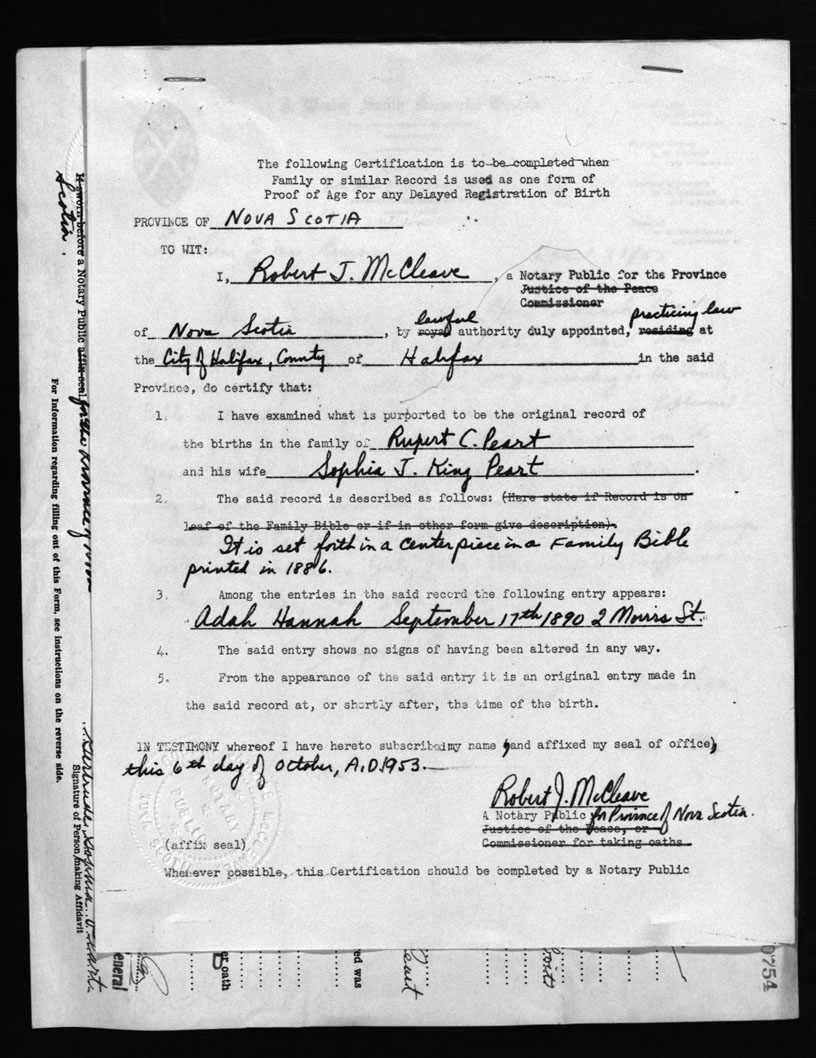 The following Certification is to be completed when
Family or similar Record is used as one form of
Proof of Age for any Delayed Registration of Birth
PROVINCE OF NOVA SCOTIA
TO WIT:
I, Robert J. McCleave, a Notary Public for the Province
Justice of the Peace
Commissioner
lawful practicing law
of Nova Scotia, by royal authority duly appointed, residing at
the City of Halifax, County of Halifax in the said
Province, do certify that:
1. I have examined what is purported to be the original record of
the births in the family of Rupert C. Peart
and his wife Sophia J. King Peart.
2. The said record is described as follows: (Here state if Record is on
leaf of the Family Bible or if in other form give description).
It is set forth in a centerpiece in a Family Bible
printed in 1886.
3. Among the entries in the said record the following entry appears:
"Adah Hannah September 17th 1890 2 Morris St."
4. The said entry shows no signs of having been altered in any way.
5. From the appearance of the said entry it is an original entry made in
the said record at, or shortly after, the time of the birth.
IN TESTIMONY whereof I have hereto subscribed my name (and affixed my seal of office)
this 6th day of October, A.D. 1953.
Robert J. McCleave
A Notary Public for Province of Nova Scotia.
Justice of the Peace, or
Commissioner for taking oaths
(affix seal)
Whenever possible, this Certification should be completed by a Notary Public
NOTARY
PUBLIC
NOVA SCOTIA
sworn before a Notary Public affix seal for the Province of Nova
Scotia.
For Information regarding filling out of this Form, see instructions on the reverse side.
Gertrude Sophia
Signature of Person making Affidavit
eneral
er oath
ed was
0754